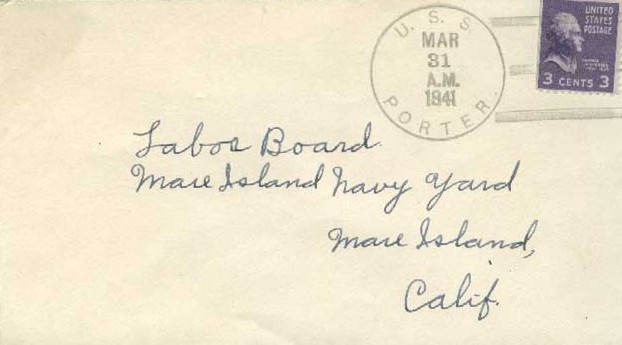 U. S. S.
MAR
31
A.M.
1941
PORTER.
UNITED
STATES
POSTAGE
3 CENTS 3
Labor Board
Mare Island Navy Yard
Mare Island,
Calif.